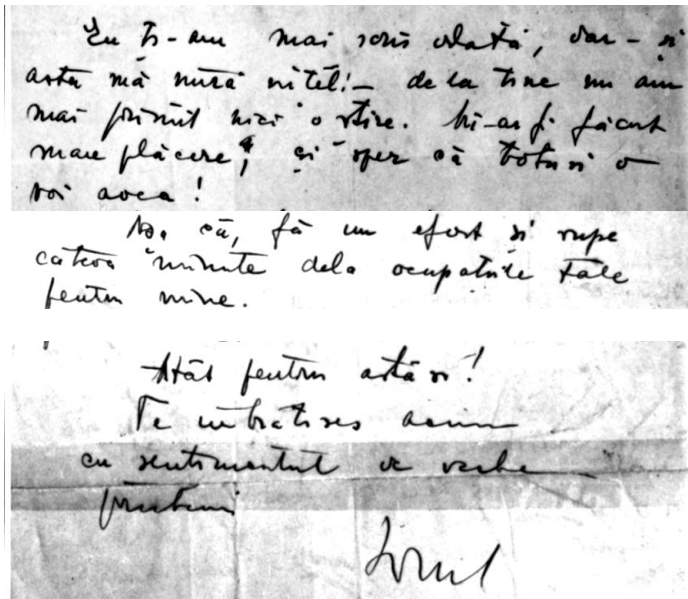 Eu ți-am mai scris odată, dar – și
asta mă miră nițel! – dela tine nu am
mai primit nici o știre. Mi-ar fi făcut
mare plăcere, și sper că totuși o
voi avea!
Așa că, fă un efort și rupe
câteva minute dela ocupațiile tale
pentru mine.
Atât pentru astăzi!
Te îmbrățișez acum
cu sentimentul de veche
prietenie
Ionel